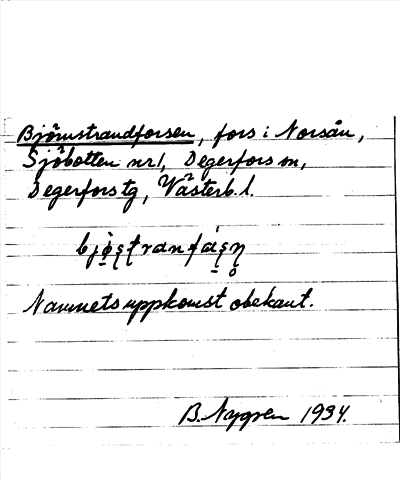 Björnstrandforsen, fors i Norsån,
Sjöbotten nr 1, Degerfors sn,
Degerfors tg, Västerb. l.
Namnets uppkomst obekant.
B. Nygren 1934.